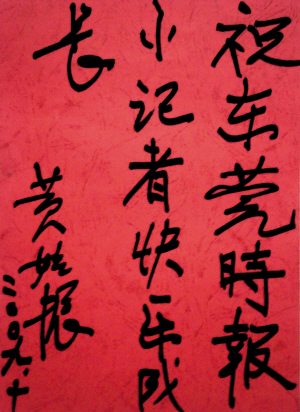 祝东莞時報
小记者快乐成
长
黄
二〇〇九.十